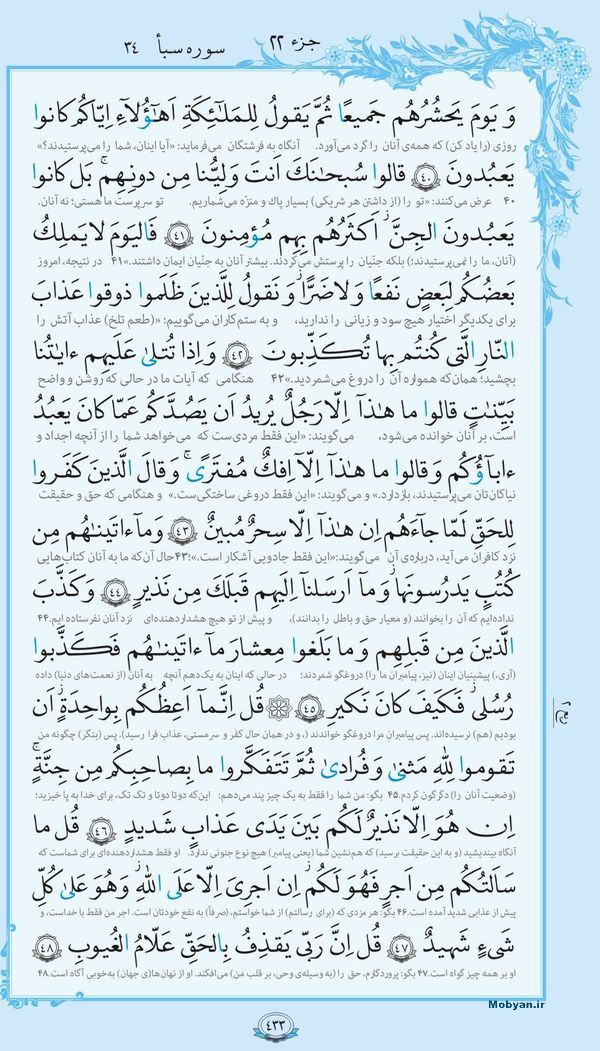 جزء ۲۲
سوره سبأ
۳۴
وَ يَومَ يَحشُرُهُم جَميعًا ثُمَّ يَقولُ لِلمَلـٰئِكَةِ اَهـٰؤُلاۤءِ اِيّاكُم كانوا
روزی (را یاد کن) که همه‌ی آنان را گرد می‌آورد. آنگاه به فرشتگان می‌فرماید: «آیا اینان، شما را می‌پرستیدند؟»
يَعبُدونَ ﴿۴۰﴾ قالوا سُبحـٰنَكَ اَنتَ وَلِيُّنا مِن دونِهِم ۚ بَل كانوا
۴۰ عرض می‌کنند: «تو را (از داشتن هر شریکی) بسیار پاك و منزّه می‌شماریم، تو سرپرست ما هستی؛ نه آنان.
يَعبُدونَ الجِنَّ ۖ اَكثَرُهُم بِهِم مُؤمِنونَ ﴿۴۱﴾ فَاليَومَ لا يَملِكُ
(آنان، ما را نمی‌پرستیدند؛) بلکه جنّیان را پرستش می‌کردند. بیشتر آنان به جنّیان ایمان داشتند.»۴۱ در نتیجه، امروز
بَعضُكُم لِبَعضٍ نَفعًا وَ لا ضَرًّا وَ نَقولُ لِلَّذينَ ظَلَموا ذوقوا عَذابَ
برای یکدیگر اختیار هیچ سود و زیانی را ندارید، و به ستم‌کاران می‌گوییم: «(طعم تلخ) عذاب آتش را
النّارِ الَّتى كُنتُم بِها تُكَذِّبونَ ﴿۴۲﴾ وَ اِذا تُتلىٰ عَلَيهِم ءايـٰتُنا
بچشید؛ همان که همواره آن را دروغ می‌شمردید.»۴۲ هنگامی که آیات ما در حالی که روشن و واضح
بَيِّنـٰتٍ قالوا ما هـٰذاۤ اِلّا رَجُلٌ يُريدُ اَن يَصُدَّكُم عَمّا كانَ يَعبُدُ
است، بر آنان خوانده می‌شود، می‌گویند: «این فقط مردی‌ست که می‌خواهد شما را از آنچه اجداد و
ءاباۤؤُكُم وَ قالوا ما هـٰذاۤ اِلّاۤ اِفكٌ مُفتَرًى ۚ وَ قالَ الَّذينَ كَفَروا
نیاکان‌تان می‌پرستیدند، بازدارد.» و می‌گویند: «این فقط دروغی ساختگی‌ست.» و هنگامی که حق و حقیقت
لِلحَقِّ لَمّا جاۤءَهُم اِن هـٰذاۤ اِلّا سِحرٌ مُبينٌ ﴿۴۳﴾ وَ ماۤ ءاتَينـٰهُم مِن
نزد کافران می‌آید، درباره‌ی آن می‌گویند:«این فقط جادویی آشکار است.»؛۴۳حال آن‌که ما به آنان کتاب‌هایی
كُتُبٍ يَدرُسونَها ۖ وَ ماۤ اَرسَلناۤ اِلَيهِم قَبلَكَ مِن نَذيرٍ ﴿۴۴﴾ وَ كَذَّبَ
نداده‌ایم که آن را بخوانند (و معیار حق و باطل را بدانند)، و پیش از تو هیچ هشداردهنده‌ای نزد آنان نفرستاده ایم.۴۴
الَّذينَ مِن قَبلِهِم وَ ما بَلَغوا مِعشارَ ماۤ ءاتَينـٰهُم فَكَذَّبوا
(آری،) پیشینیان اینان (نیز، پیامبران ما را) دروغگو شمردند؛ در حالی که اینان به یک‌دهم آنچه به آنان (از نعمت‌های دنیا) داده
رُسُلى ۖ فَكَيفَ كانَ نَكيرِ ﴿۴۵﴾ قُل اِنَّماۤ اَعِظُكُم بِواحِدَةٍ ۖ اَن
بودیم (هم) نرسیده‌اند. پس پیامبرانِ مرا دروغگو خواندند (، و در همان حال کفر و سرمستی، عذاب فرا رسید). پس (بنگر) چگونه من
تَقوموا لِلّٰهِ مَثنىٰ وَ فُرادىٰ ثُمَّ تَتَفَكَّروا ۚ ما بِصاحِبِكُم مِن جِنَّةٍ ۚ
(وضعیت آنان را) دگرگون کردم.۴۵ بگو: من شما را فقط به یک چیز پند می‌دهم: این‌که دوتا دوتا و تک تک، برای خدا به پا خیزید؛
اِن هُوَ اِلّا نَذيرٌ لَكُم بَينَ يَدَى عَذابٍ شَديدٍ ﴿۴۶﴾ قُل ما
آنگاه بیندیشید (و به این حقیقت برسید) که هم‌نشین شما (یعنی پیامبر) هیچ نوع جنونی ندارد. او فقط هشداردهنده‌ای برای شماست که
سَاَلتُكُم مِن اَجرٍ فَهُوَ لَكُم ۖ اِن اَجرِىَ اِلّا عَلَى اللّٰهِ ۖ وَ هُوَ عَلىٰ كُلِّ
پیش از عذابی شدید آمده است.۴۶ بگو: هر مزدی که (برای رسالتم) از شما خواستم، (صرفاً) به نفع خودتان است. اجر من فقط با خداست، و
شَىءٍ شَهيدٌ ﴿۴۷﴾ قُل اِنَّ رَبّى يَقذِفُ بِالحَقِّ عَلّامُ الغُيوبِ ﴿۴۸﴾
او بر همه چیز گواه است.۴۷ بگو: پروردگارم، حق را (به وسیله‌ی وحی، بر قلب من) می‌افکند. او از نهان‌ها(ی جهان) به‌خوبی آگاه است.۴۸
Mobyan.ir
۴۳۳